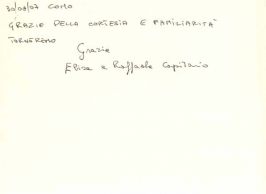 30/08/07 COMO
GRAZIE DELLA CORTESIA E FAMILIARITA'
TORNEREMO
Grazie
Elisa e Raffaele Capitanio